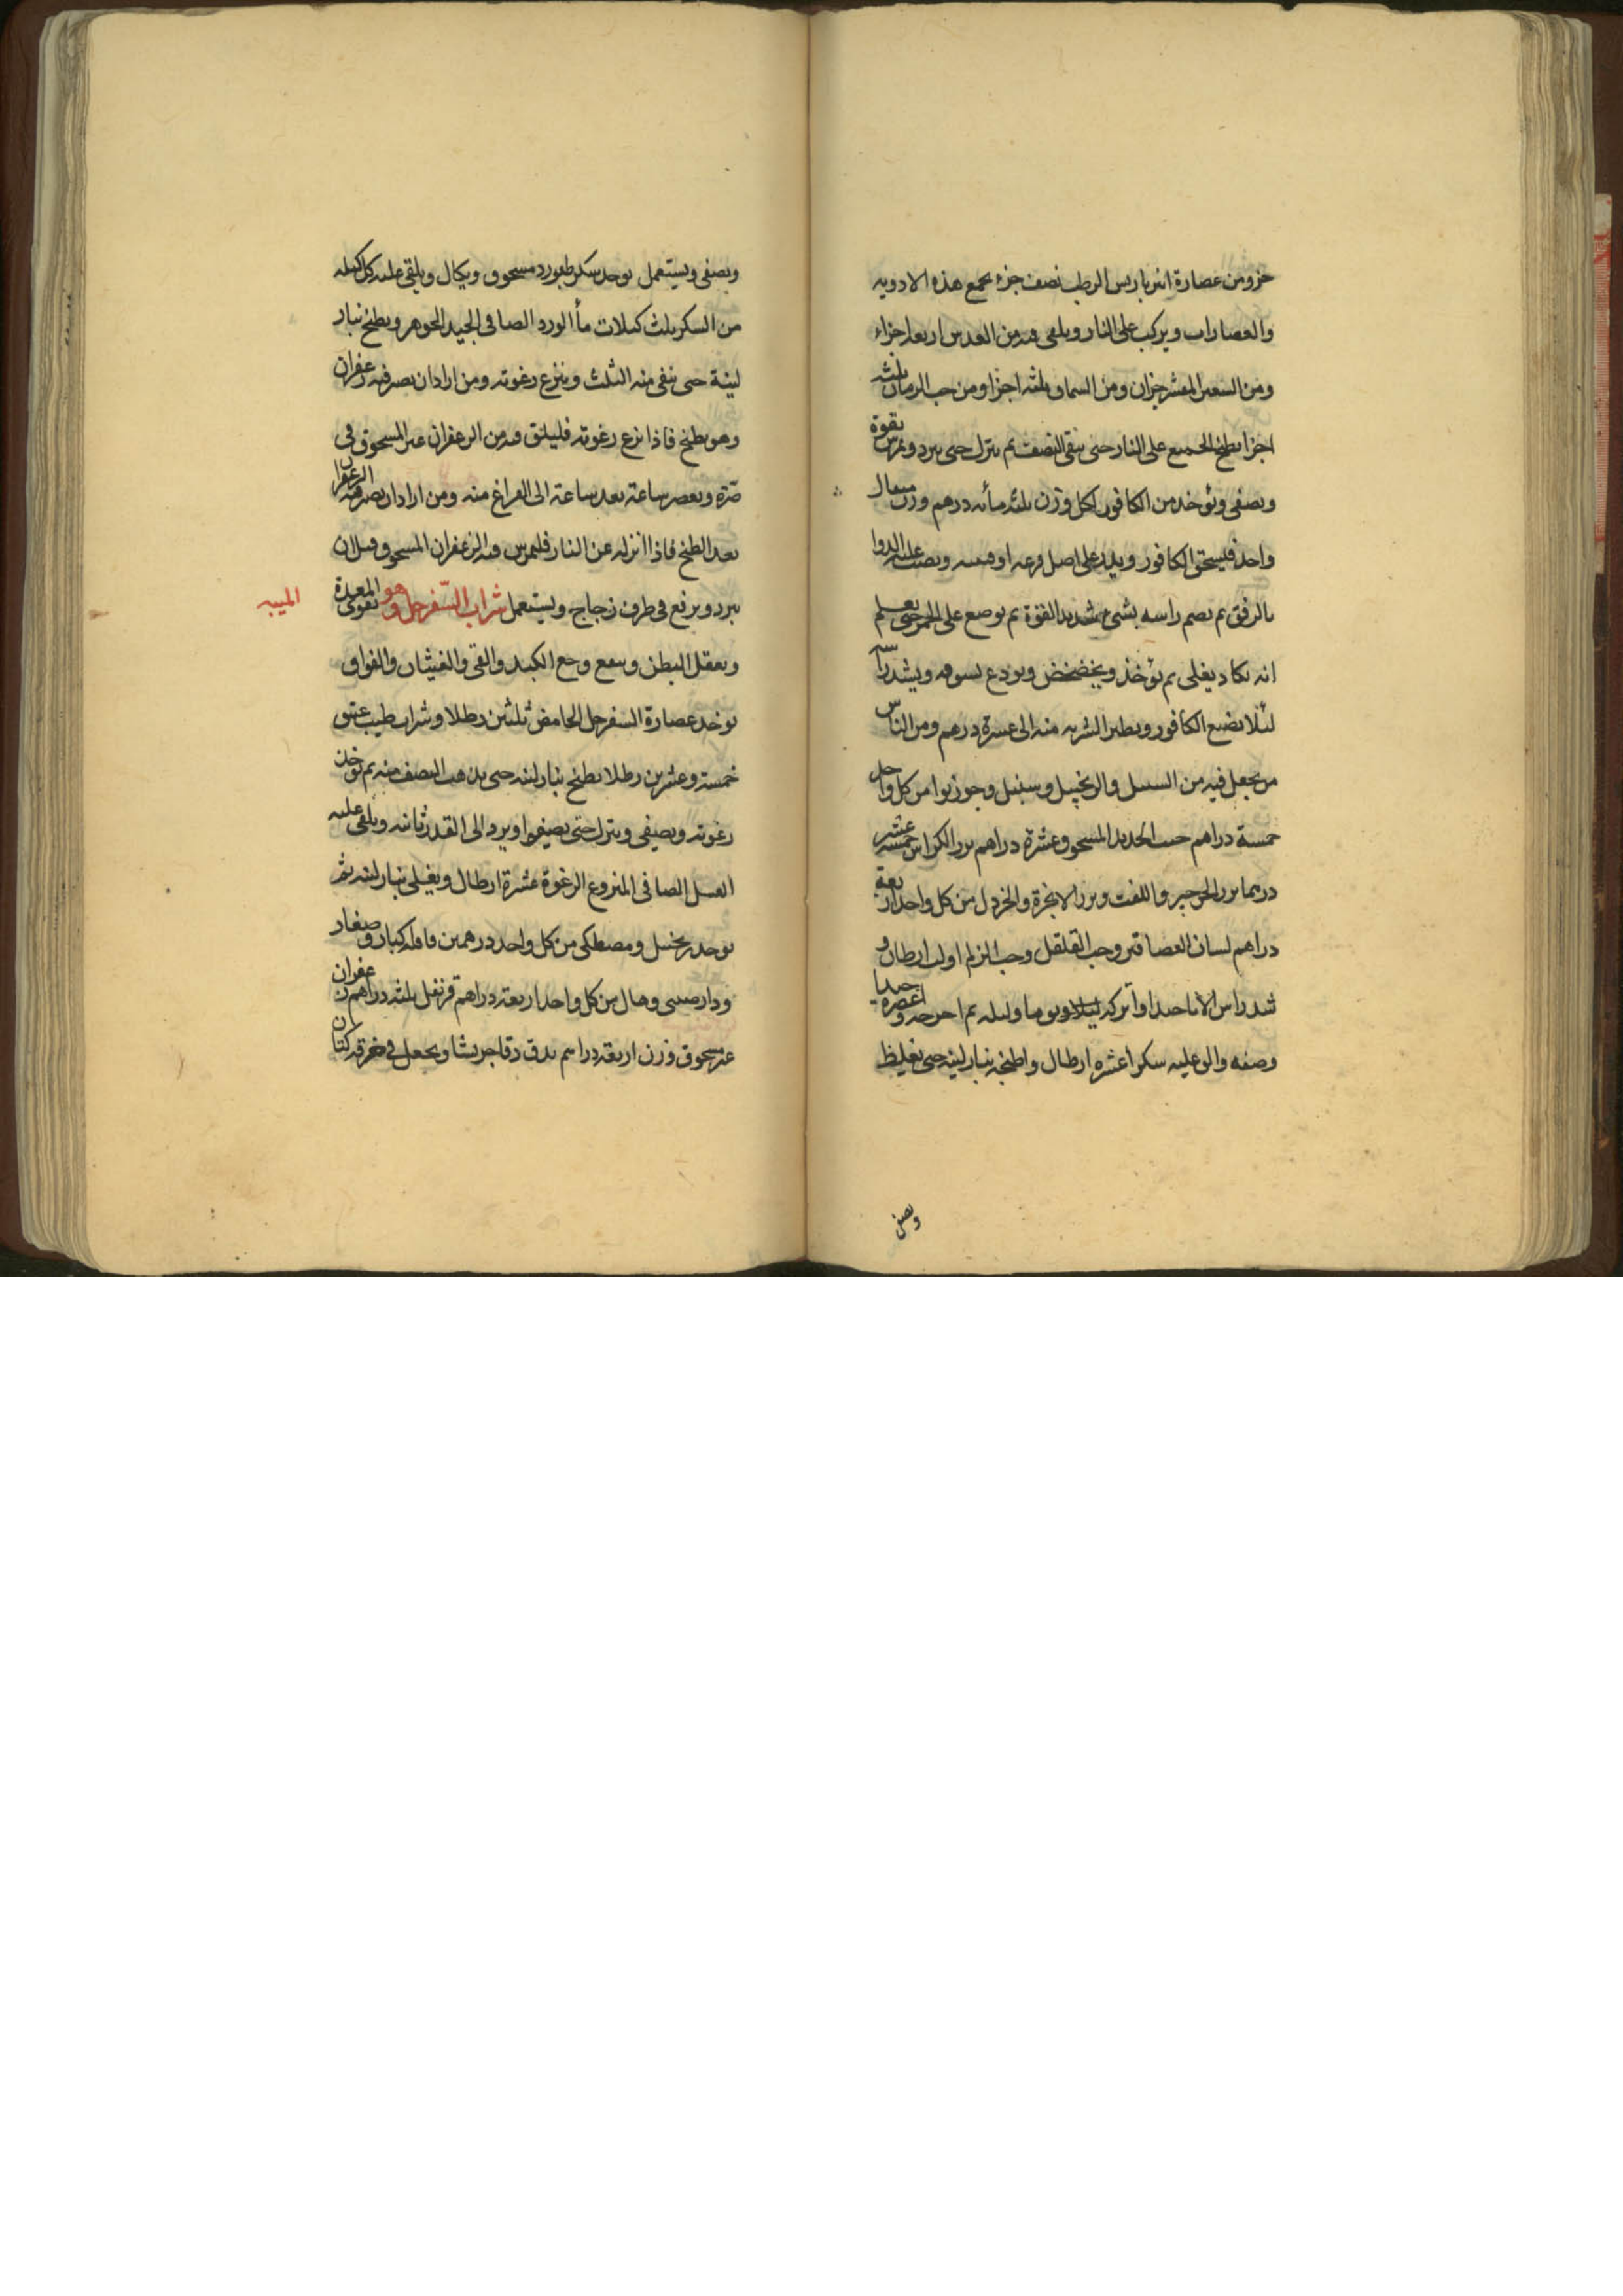 جزو ومن عصارة انبرباريس الرطب نصف جزء يجمع هذه الادويه
والعصارات ويركب على النار ويلقى فيه من العدس اربعة اجزاء
ومن الشعير المقشر جزان ومن السماق ثلثه اجزا ومن حب الرمان ثلثه
اجزا يطبخ الجميع على النار حتى يبقى النصف ثم ينزل حتى يبرد ويمرس بقوة
ويصفى ويؤخذ من الكافور لكل وزن ثلثه مأئه درهم وزن مثقال
واحد فيسحق الكافور ويلد على اصل قرعه او قنينه ويصب عليه الدوا
بالرفق ثم يصم راسه بشئ شديد القوة ثم يوضع على الجمر حتى يعلم
انه يكاد يغلى ثم يؤخذ ويخضخض ويودع بسوقه ويشد راسه
لئلا يضيع الكافور ويطير الشربه منه الى عشرة درهم ومن الناس
من يجعل فيه من السنبل والزنجبيل وسنبل وجوزبوا من كل واحد
خمسة دراهم خبث الحديد المسحوق عشرة دراهم بزر الكراس خمسه عشر
درهما بزر الجرجير واللفت وبزر الانجرة والخردل من كل واحد اربعة
دراهم لسان العصافير وحب القلقل وحب الزلم اولب ارطان و
شد راس الانا جيدا واتركه ليلا ويوما وليله ثم اخرجه واعصره جيدا
وصفه والق عليه سكرا عشره ارطال واطبخه بنار لينه حتى يغليظ
ويصفى
ويصفى ويستعمل يوخذ سكر طبرزد مسحوق ويكال ويلقى عليه كل كيله
من السكر ثلث كيلات مأ الورد الصافى الجيد الجوهر ويطبخ بنار
لينة حتى يبقى منه الثلث وينزع رغوته ومن اراد ان يصر فيه زعفران
وهو يطبخ فاذا نزع رغوته فليلق فيه من الزعفران غير المسحوق فى
صرة ويعصر ساعة بعد ساعة الى الفراغ منه ومن اراد ان يصر فيه الزعفران
بعد الطبخ فاذا انزله عن النار فليمرس فيه الزعفران المسحوق قبل ان
يبرد ويرفع فى ظرف زجاج ويستعمل شراب السفرجل وهو يقوى المعدة
الميبه
ويعقل البطن وينفع وجع الكبد والقئ والغيثان والفواق
يوخذ عصارة السفرجل الحامض ثلثين رطلا وشراب طيب عتيق
خمسة وعشرين رطلا يطبخ بنار لينه حتى يذهب النصف منه ثم توخذ
رغوته ويصفى وينزل حتى يصفوا ويرد الى القدر ثانيه ويلقى عليه
العسل الصافى المنزوع الرغوة عشرة ارطال ويغلى بنار لينه ثم
يوخذ زنجبيل ومصطكى من كل واحد درهمين قاقله كبار وصغار
ودارصينى وهال من كل واحد اربعة دراهم قرنفل ثلثه دراهم زعفران
غير مسحوق وزن اربعة دراهم يدق دقا جريشا ويجعل فى خرقه كتان